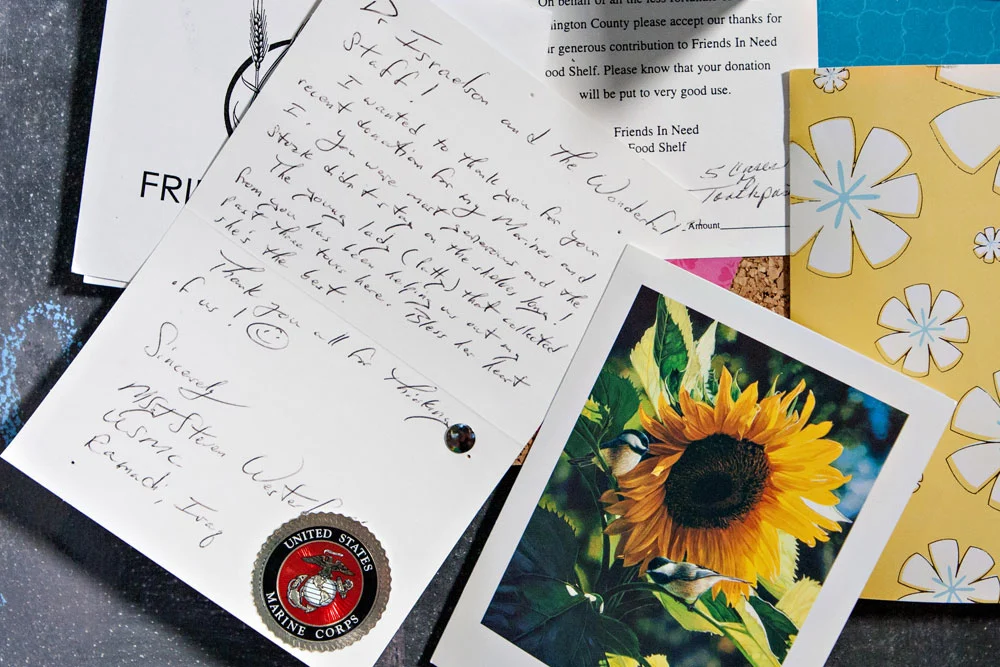 On behalf of all the less fortunate
ington County please accept our thanks for
ur generous contribution to Friends In Need
ood Shelf. Please know that your donation
will be put to very good use.
Friends In Need
Food Shelf
5 Cases
Amount
FRI
Dr Israelson and the Wonderful
Staff!
I wanted to thank you for your
recent donation for my Marines and
I. You were most generous and the
stock didn't stay on the shelves long!
The young lady (Patty) that collected
from you has been helping us out my
past three tours here. Bless her heart
she's the best.
Thank you all for thinking
of us!
Sincerely
MSgt Steven
USMC
Ramadi, Iraq
UNITED STATES
MARINE CORPS